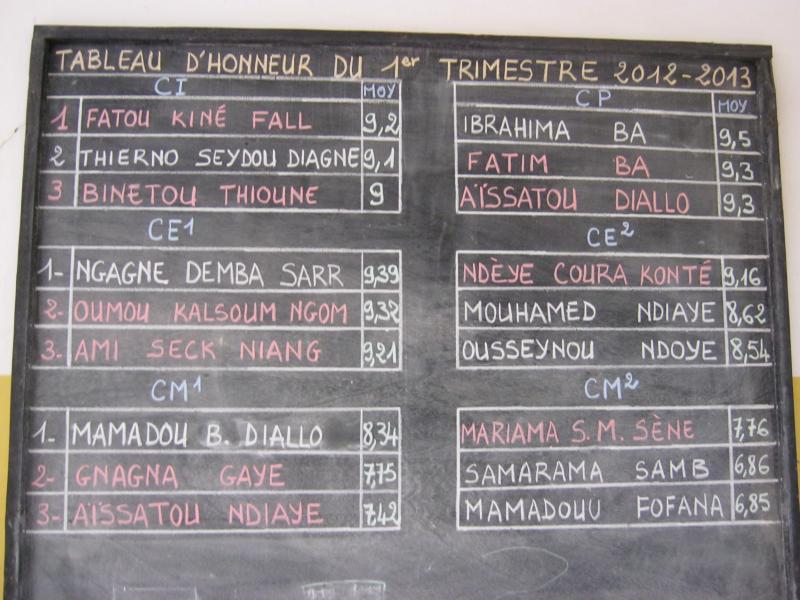 TABLEAU D'HONNEUR DU 1er TRIMESTRE 2012-2013
CI MOY
1 FATOU KINÉ FALL 9,2
2 THIERNO SEYDOU DIAGNE 9,1
3 BINETOU THIOUNE 9
CP MOY
IBRAHIMA BA 9,5
FATIM BA 9,3
AÏSSATOU DIALLO 9,3
CE1
1- NGAGNE DEMBA SARR 9,39
2- OUMOU KALSOUM NGOM 9,32
3- AMI SECK NIANG 9,21
CE2
NDÈYE COURA KONTÉ 9,16
MOUHAMED NDIAYE 8,62
OUSSEYNOU NDOYE 8,54
CM1
1- MAMADOU B. DIALLO 8,34
2- GNAGNA GAYE 7,75
3- AÏSSATOU NDIAYE 7,42
CM2
MARIAMA S.M. SÈNE 7,76
SAMARAMA SAMB 6,86
MAMADOUU FOFANA 6,85